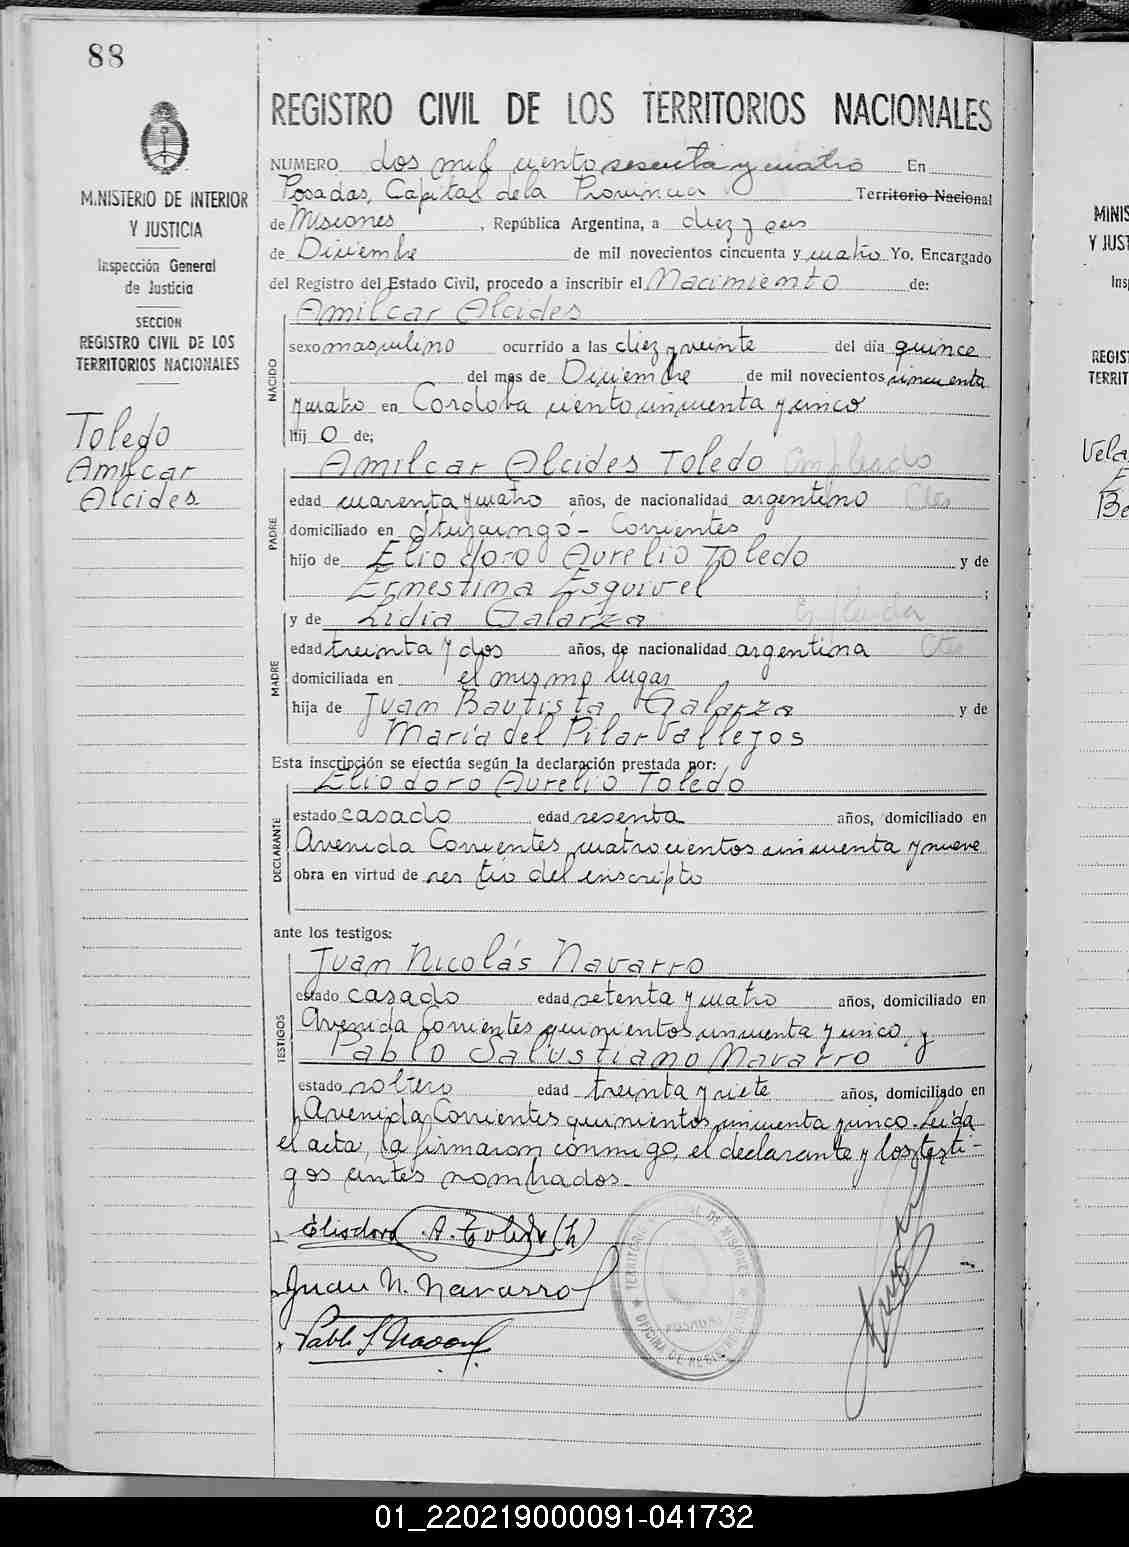 88
MINISTERIO DE INTERIOR
Y JUSTICIA
Inspección General
de Justicia
SECCION
REGISTRO CIVIL DE LOS
TERRITORIOS NACIONALES
Toledo
Amilcar
Alcides
REGISTRO CIVIL DE LOS TERRITORIOS NACIONALES
NUMERO dos mil ciento sesenta y cuatro En
Posadas, Capital de la Provincia Territorio Nacional
de Misiones, República Argentina, a diez y seis
de Diciembre de mil novecientos cincuenta y cuatro Yo, Encargado
del Registro del Estado Civil, procedo a inscribir el Nacimiento de:
NACIDO
Amilcar Alcides
sexo masculino ocurrido a las diez y veinte del día quince
del mes de Diciembre de mil novecientos cincuenta
y cuatro en Córdoba ciento cincuenta y cinco
hijo de;
PADRE
Amilcar Alcides Toledo Empleado
edad cuarenta y cuatro años, de nacionalidad argentino Ctes
domiciliado en Ituzaingó - Corrientes
hijo de Eliodoro Aurelio Toledo y de
Ernestina Esquivel;
MADRE
y de Lidia Galarza
edad treinta y dos años, de nacionalidad argentina Ctes
domiciliada en el mismo lugar
hija de Juan Bautista Galarza y de
María del Pilar Vallejos
Esta inscripción se efectúa según la declaración prestada por:
DECLARANTE
Eliodoro Aurelio Toledo
estado casado edad sesenta años, domiciliado en
Avenida Corrientes cuatrocientos cincuenta y nueve
obra en virtud de ser tío del inscripto
ante los testigos:
TESTIGOS
Juan Nicolás Navarro
estado casado edad setenta y cuatro años, domiciliado en
Avenida Corrientes quinientos cincuenta y cinco y
Pablo Salustiano Navarro
estado soltero edad treinta y siete años, domiciliado en
Avenida Corrientes quinientos cincuenta y cinco. Leída
el acta, la firmaron conmigo, el declarante y los testi-
gos antes nombrados.-
Eliodoro A. Toledo (h)
Juan N. Navarro
Pablo S. Navarro
POSADAS
MINIS
Y JUST
Ins
REGIST
TERRIT
Vela
Be
01_220219000091-041732